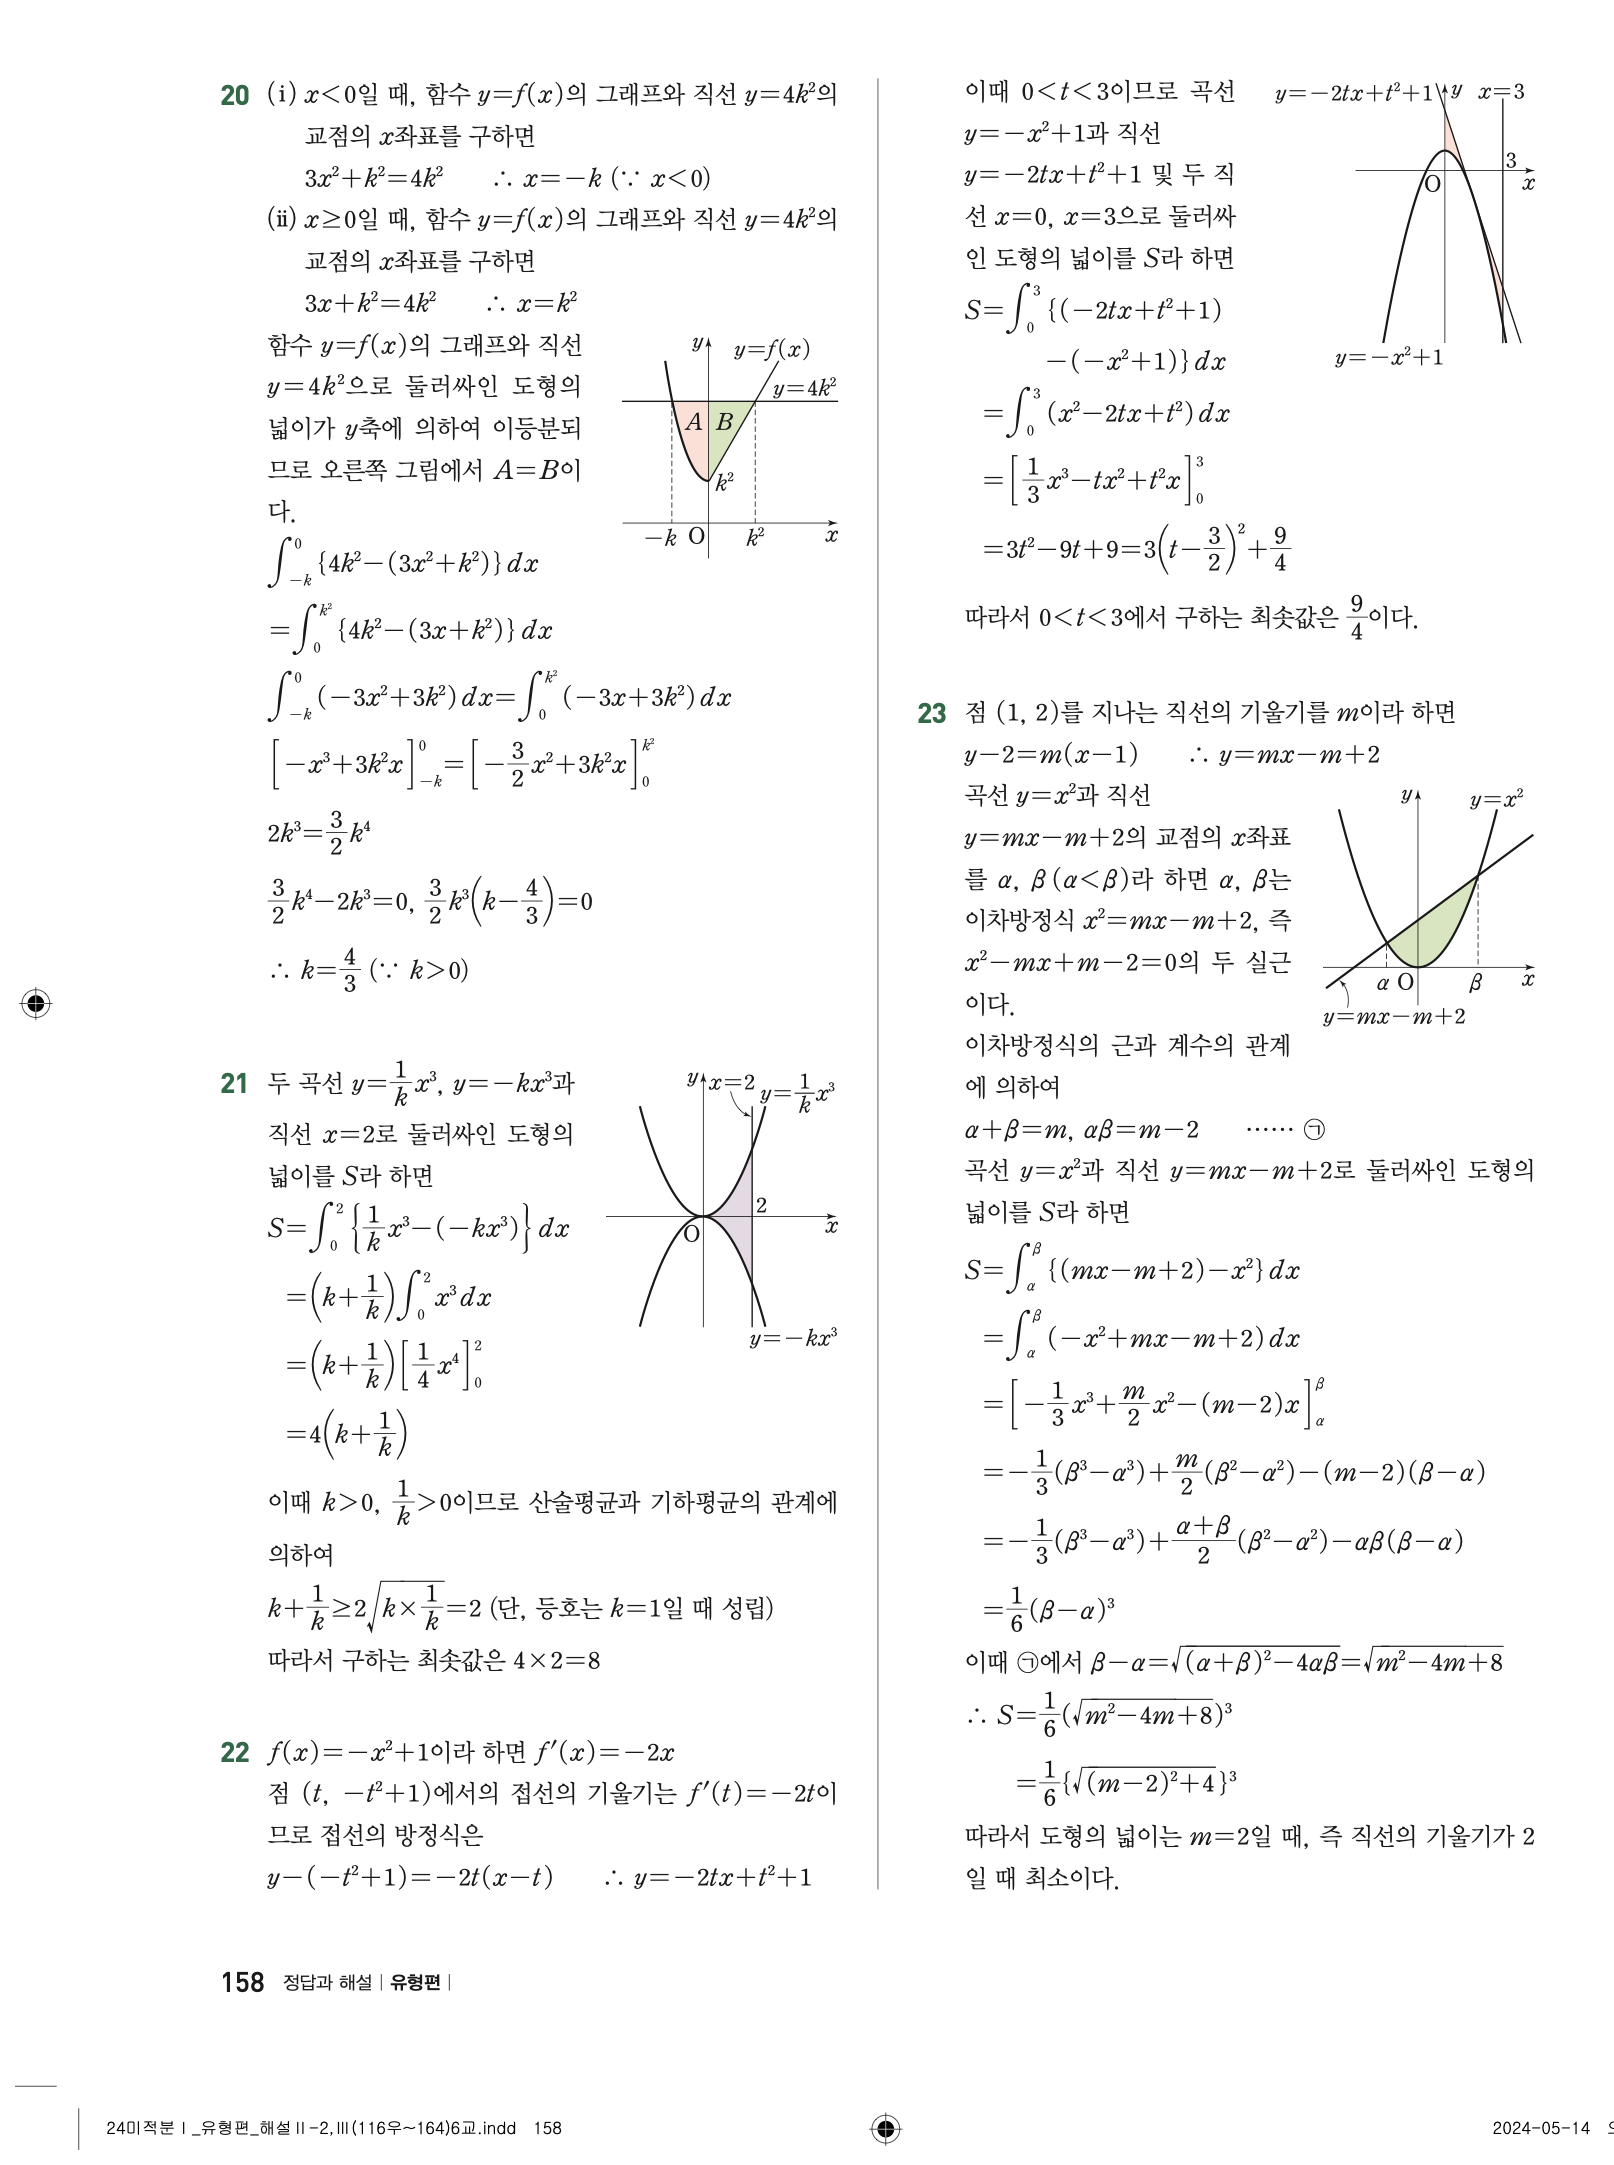 20 (ⅰ) x<0일 때, 함수 y=f(x)의 그래프와 직선 y=4k²의
교점의 x좌표를 구하면
3x²+k²=4k² ∴ x=-k (∵ x<0)
(ⅱ) x≥0일 때, 함수 y=f(x)의 그래프와 직선 y=4k²의
교점의 x좌표를 구하면
3x+k²=4k² ∴ x=k²
함수 y=f(x)의 그래프와 직선
y=4k²으로 둘러싸인 도형의
넓이가 y축에 의하여 이등분되
므로 오른쪽 그림에서 A=B이
다.
y y=f(x)
y=4k²
A B
k²
-k O k² x
∫_{-k}^{0} {4k²-(3x²+k²)} dx
=∫_{0}^{k²} {4k²-(3x+k²)} dx
∫_{-k}^{0} (-3x²+3k²) dx=∫_{0}^{k²} (-3x+3k²) dx
[-x³+3k²x]_{-k}^{0}=[-3/2 x²+3k²x]_{0}^{k²}
2k³=3/2 k⁴
3/2 k⁴-2k³=0, 3/2 k³(k-4/3)=0
∴ k=4/3 (∵ k>0)
21 두 곡선 y=1/k x³, y=-kx³과
직선 x=2로 둘러싸인 도형의
넓이를 S라 하면
y x=2 y=1/k x³
2
O x
y=-kx³
S=∫_{0}^{2} {1/k x³-(-kx³)} dx
=(k+1/k)∫_{0}^{2} x³ dx
=(k+1/k)[1/4 x⁴]_{0}^{2}
=4(k+1/k)
이때 k>0, 1/k>0이므로 산술평균과 기하평균의 관계에
의하여
k+1/k≥2√(k×1/k)=2 (단, 등호는 k=1일 때 성립)
따라서 구하는 최솟값은 4×2=8
22 f(x)=-x²+1이라 하면 f′(x)=-2x
점 (t, -t²+1)에서의 접선의 기울기는 f′(t)=-2t이
므로 접선의 방정식은
y-(-t²+1)=-2t(x-t) ∴ y=-2tx+t²+1
이때 0<t<3이므로 곡선
y=-x²+1과 직선
y=-2tx+t²+1 및 두 직
선 x=0, x=3으로 둘러싸
인 도형의 넓이를 S라 하면
y=-2tx+t²+1 y x=3
3
O x
y=-x²+1
S=∫_{0}^{3} {(-2tx+t²+1)
-(-x²+1)} dx
=∫_{0}^{3} (x²-2tx+t²) dx
=[1/3 x³-tx²+t²x]_{0}^{3}
=3t²-9t+9=3(t-3/2)²+9/4
따라서 0<t<3에서 구하는 최솟값은 9/4이다.
23 점 (1, 2)를 지나는 직선의 기울기를 m이라 하면
y-2=m(x-1) ∴ y=mx-m+2
곡선 y=x²과 직선
y=mx-m+2의 교점의 x좌표
를 α, β (α<β)라 하면 α, β는
이차방정식 x²=mx-m+2, 즉
x²-mx+m-2=0의 두 실근
이다.
이차방정식의 근과 계수의 관계
에 의하여
y y=x²
α O β x
y=mx-m+2
α+β=m, αβ=m-2 …… ㉠
곡선 y=x²과 직선 y=mx-m+2로 둘러싸인 도형의
넓이를 S라 하면
S=∫_{α}^{β} {(mx-m+2)-x²} dx
=∫_{α}^{β} (-x²+mx-m+2) dx
=[-1/3 x³+m/2 x²-(m-2)x]_{α}^{β}
=-1/3(β³-α³)+m/2(β²-α²)-(m-2)(β-α)
=-1/3(β³-α³)+(α+β)/2(β²-α²)-αβ(β-α)
=1/6(β-α)³
이때 ㉠에서 β-α=√((α+β)²-4αβ)=√(m²-4m+8)
∴ S=1/6(√(m²-4m+8))³
=1/6{√((m-2)²+4)}³
따라서 도형의 넓이는 m=2일 때, 즉 직선의 기울기가 2
일 때 최소이다.
158 정답과 해설 | 유형편 |
24미적분Ⅰ_유형편_해설Ⅱ-2,Ⅲ(116우~164)6교.indd 158
2024-05-14